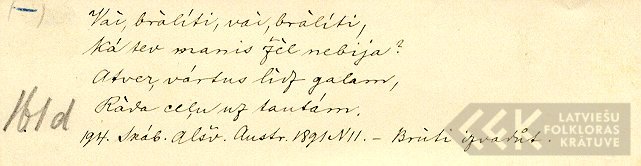 Vāi, brālīti, vāi, brālīti,
Kā tev manis žēl nebija?
Atver, vārtus līdz galam,
Rāda ceļu uz tautām.
161d
194. Snāb. Alšv. Austr. 1891 N 11. – Brūti izvadūt.
LATVIEŠU
FOLKLORAS
KRĀTUVE